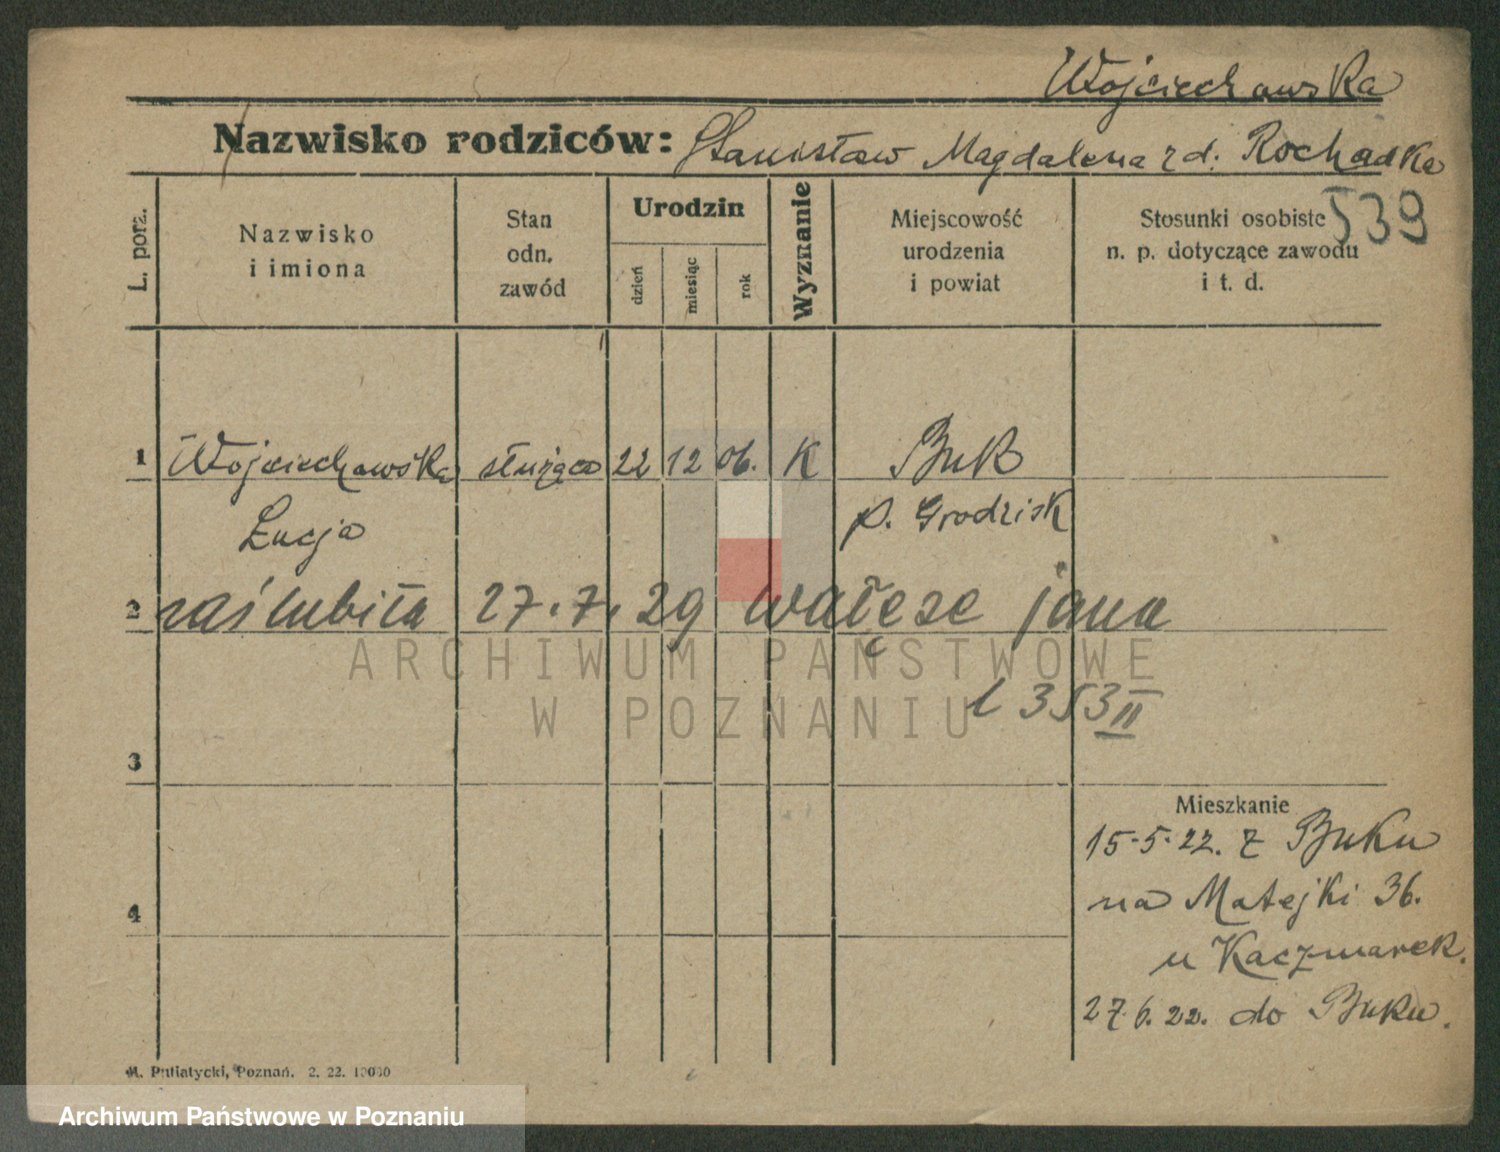 Wojciechowska
Nazwisko rodziców: Stanisław Magdalena z d. Rochadka
539
L. porz.
Nazwisko
i imiona
Stan
odn.
zawód
Urodzin
dzień
miesiąc
rok
Wyznanie
Miejscowość
urodzenia
i powiat
Stosunki osobiste
n. p. dotyczące zawodu
i t. d.
1 Wojciechowska służąca 22 12 06. K Buk
Łucja p. Grodzisk
2 zaślubiła 27.7.29 Wałęse jana
l 353 II
3
Mieszkanie
15-5-22. z Buku
na Matejki 36.
4
u Kaczmarek.
27.6.22. do Buku.
M. Putiatycki, Poznań. 2. 22. 10000
ARCHIWUM PAŃSTWOWE
W POZNANIU
Archiwum Państwowe w Poznaniu